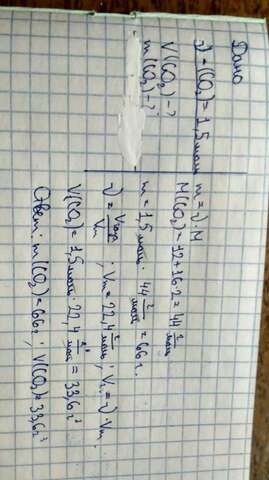 Дано
ν(CO₂) = 1,5 моль
V(CO₂) - ?
m(CO₂) - ?
m = ν · M
M(CO₂) = 12 + 16 · 2 = 44 г/моль
m = 1,5 моль · 44 г/моль = 66 г.
ν = Vгаз/Vm ; Vm = 22,4 г/моль ; Vг = ν · Vm.
V(CO₂) = 1,5 моль · 22,4 г³/моль = 33,6 г³
Ответ: m(CO₂) = 66 г ; V(CO₂) = 33,6 г³